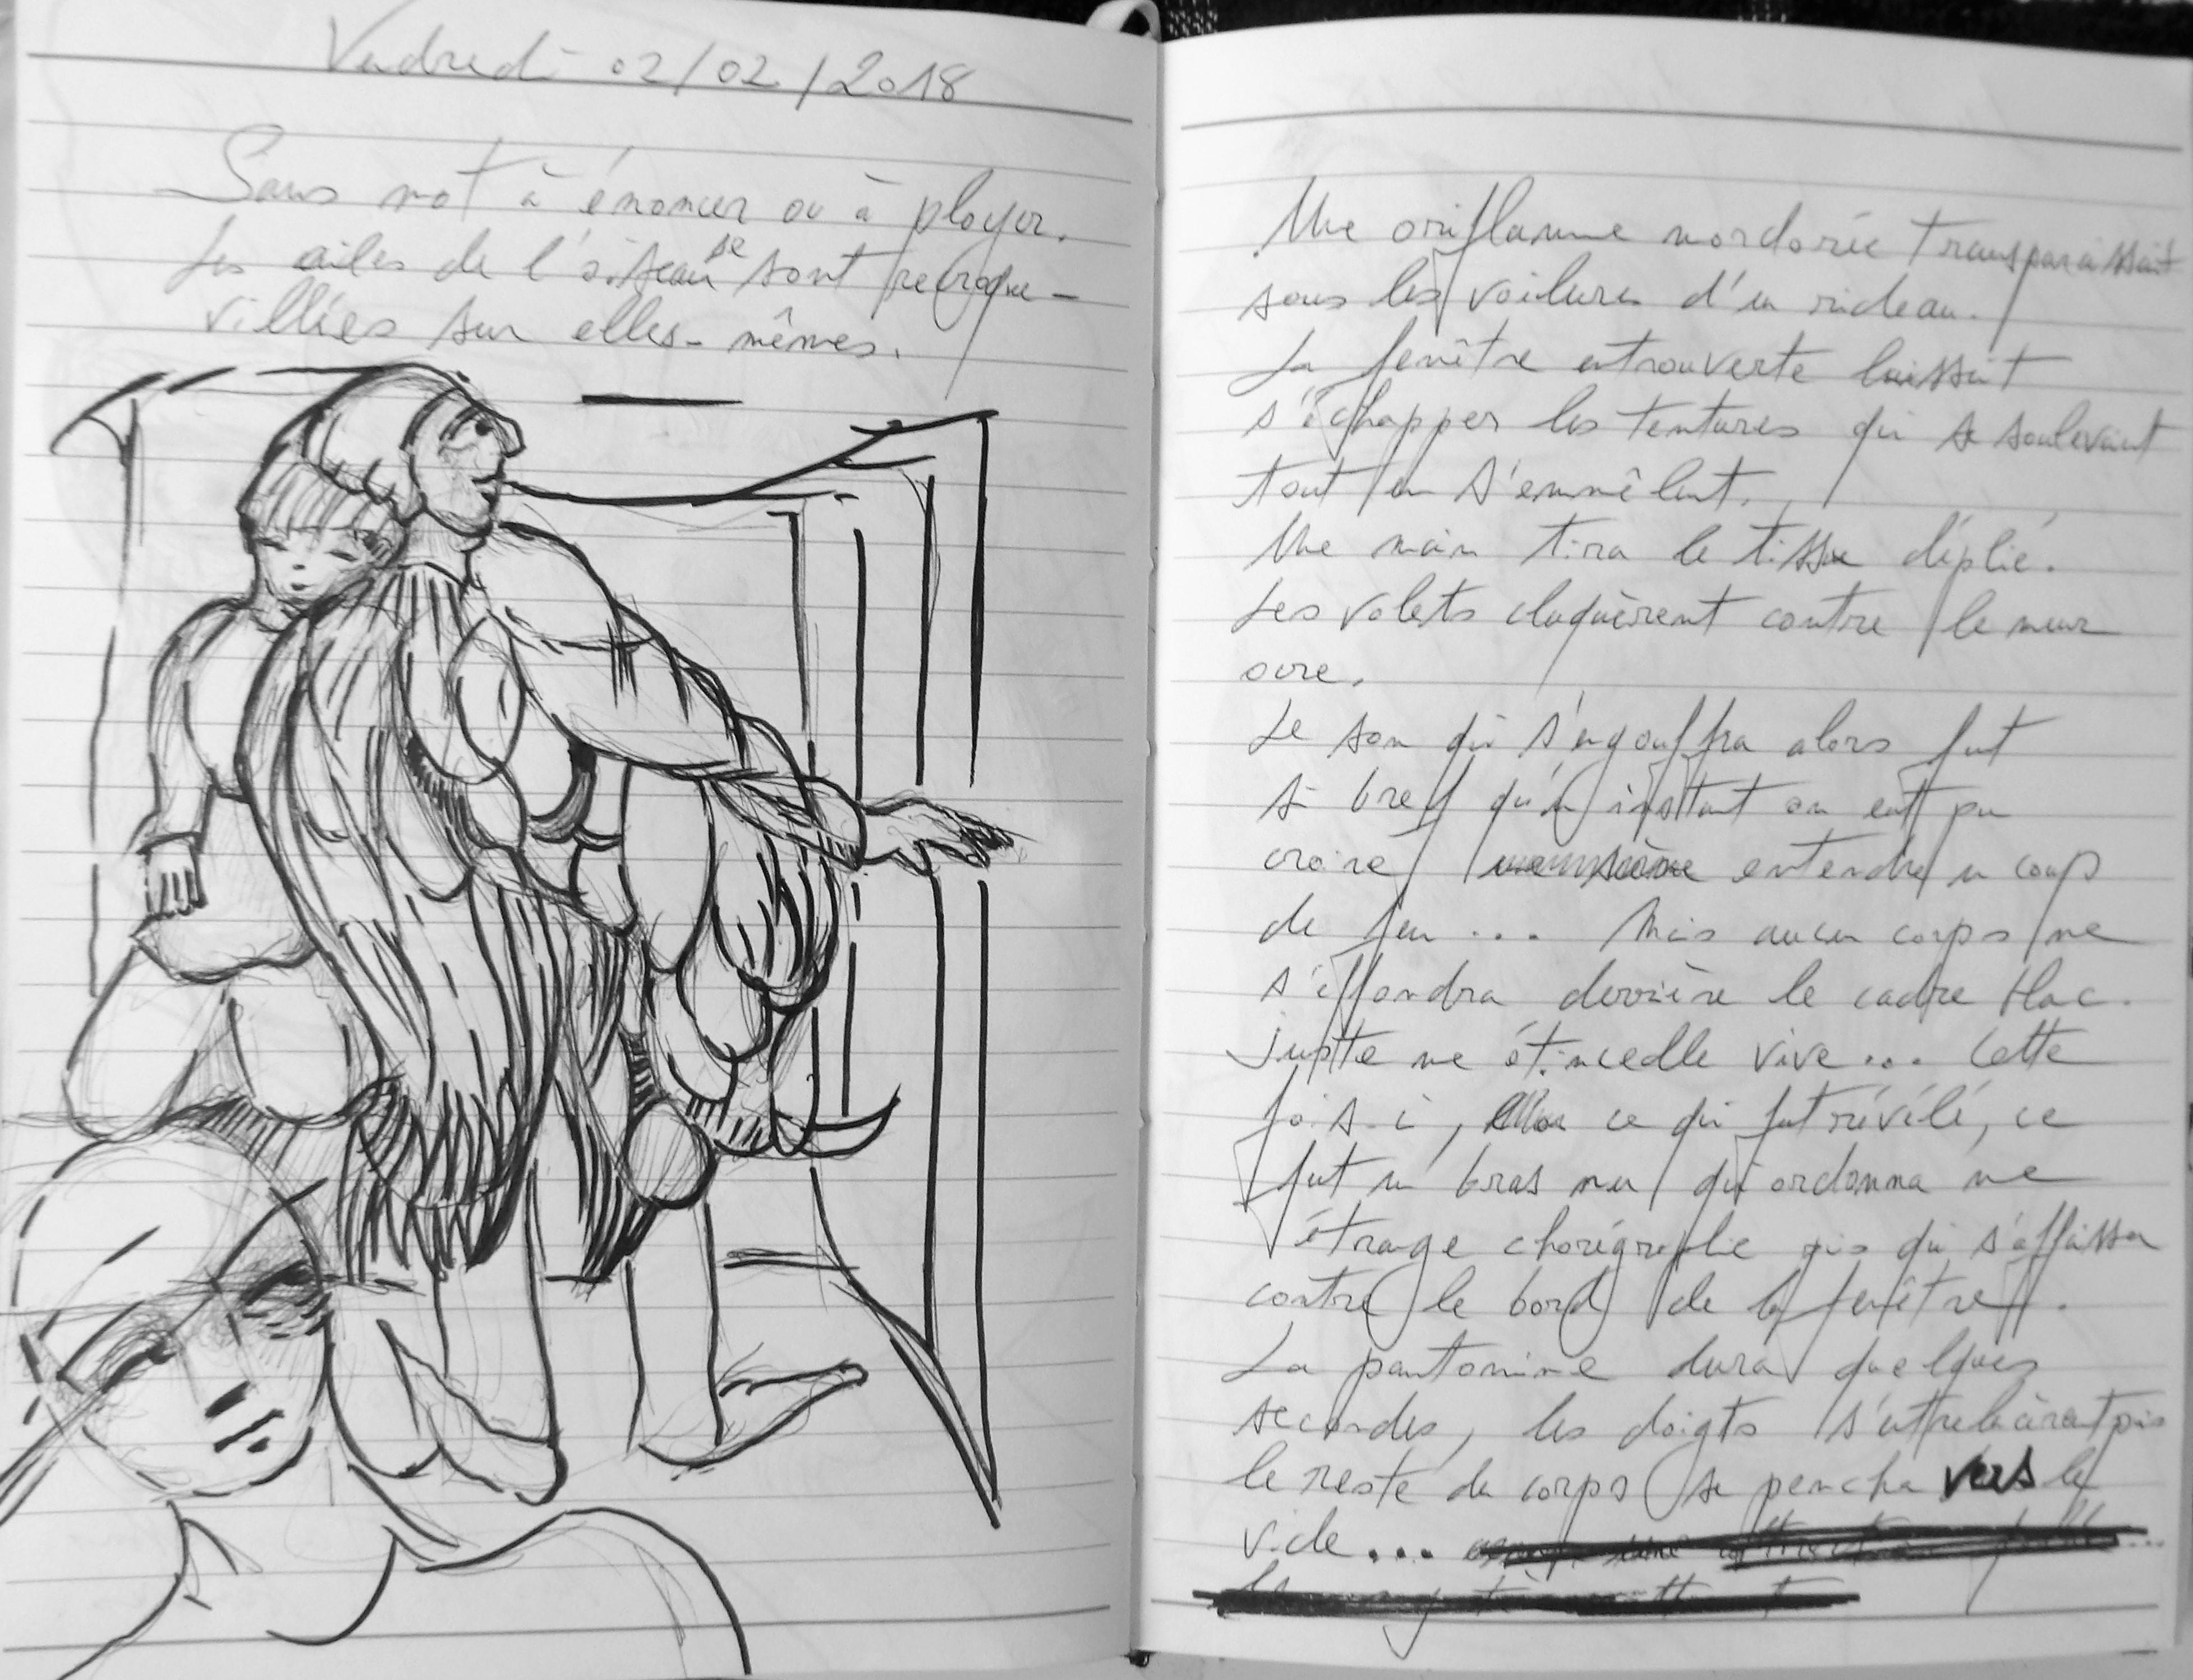 Vendredi 02/02/2018
Sans mot à énoncer ou à ployer.
Les ailes de l'oiseau se sont recroque-
villées sur elles-mêmes.
Une oriflamme mordorée transparaissait
sous les voilures d'un rideau.
La fenêtre entrouverte laissait
s'échapper les tentures qui se soulevaient
tout en s'emmêlant.
Une main tira le tissu déplié.
Les volets claquèrent contre le mur
ocre.
Le son qui s'engouffra alors fut
si bref qu'un instant on eut pu
croire entendre un coup
de feu... Mais aucun corps ne
s'effondra derrière le cadre
juste une étincelle vive... Cette
fois-ci, ce qui fut révélé, ce
fut un bras nu qui ordonna une
étrange chorégraphie puis qui s'affaissa
contre le bord de la fenêtre.
La pantomime dura quelques
secondes, les doigts s'entrelacèrent puis
le reste du corps se pencha vers le
vide...